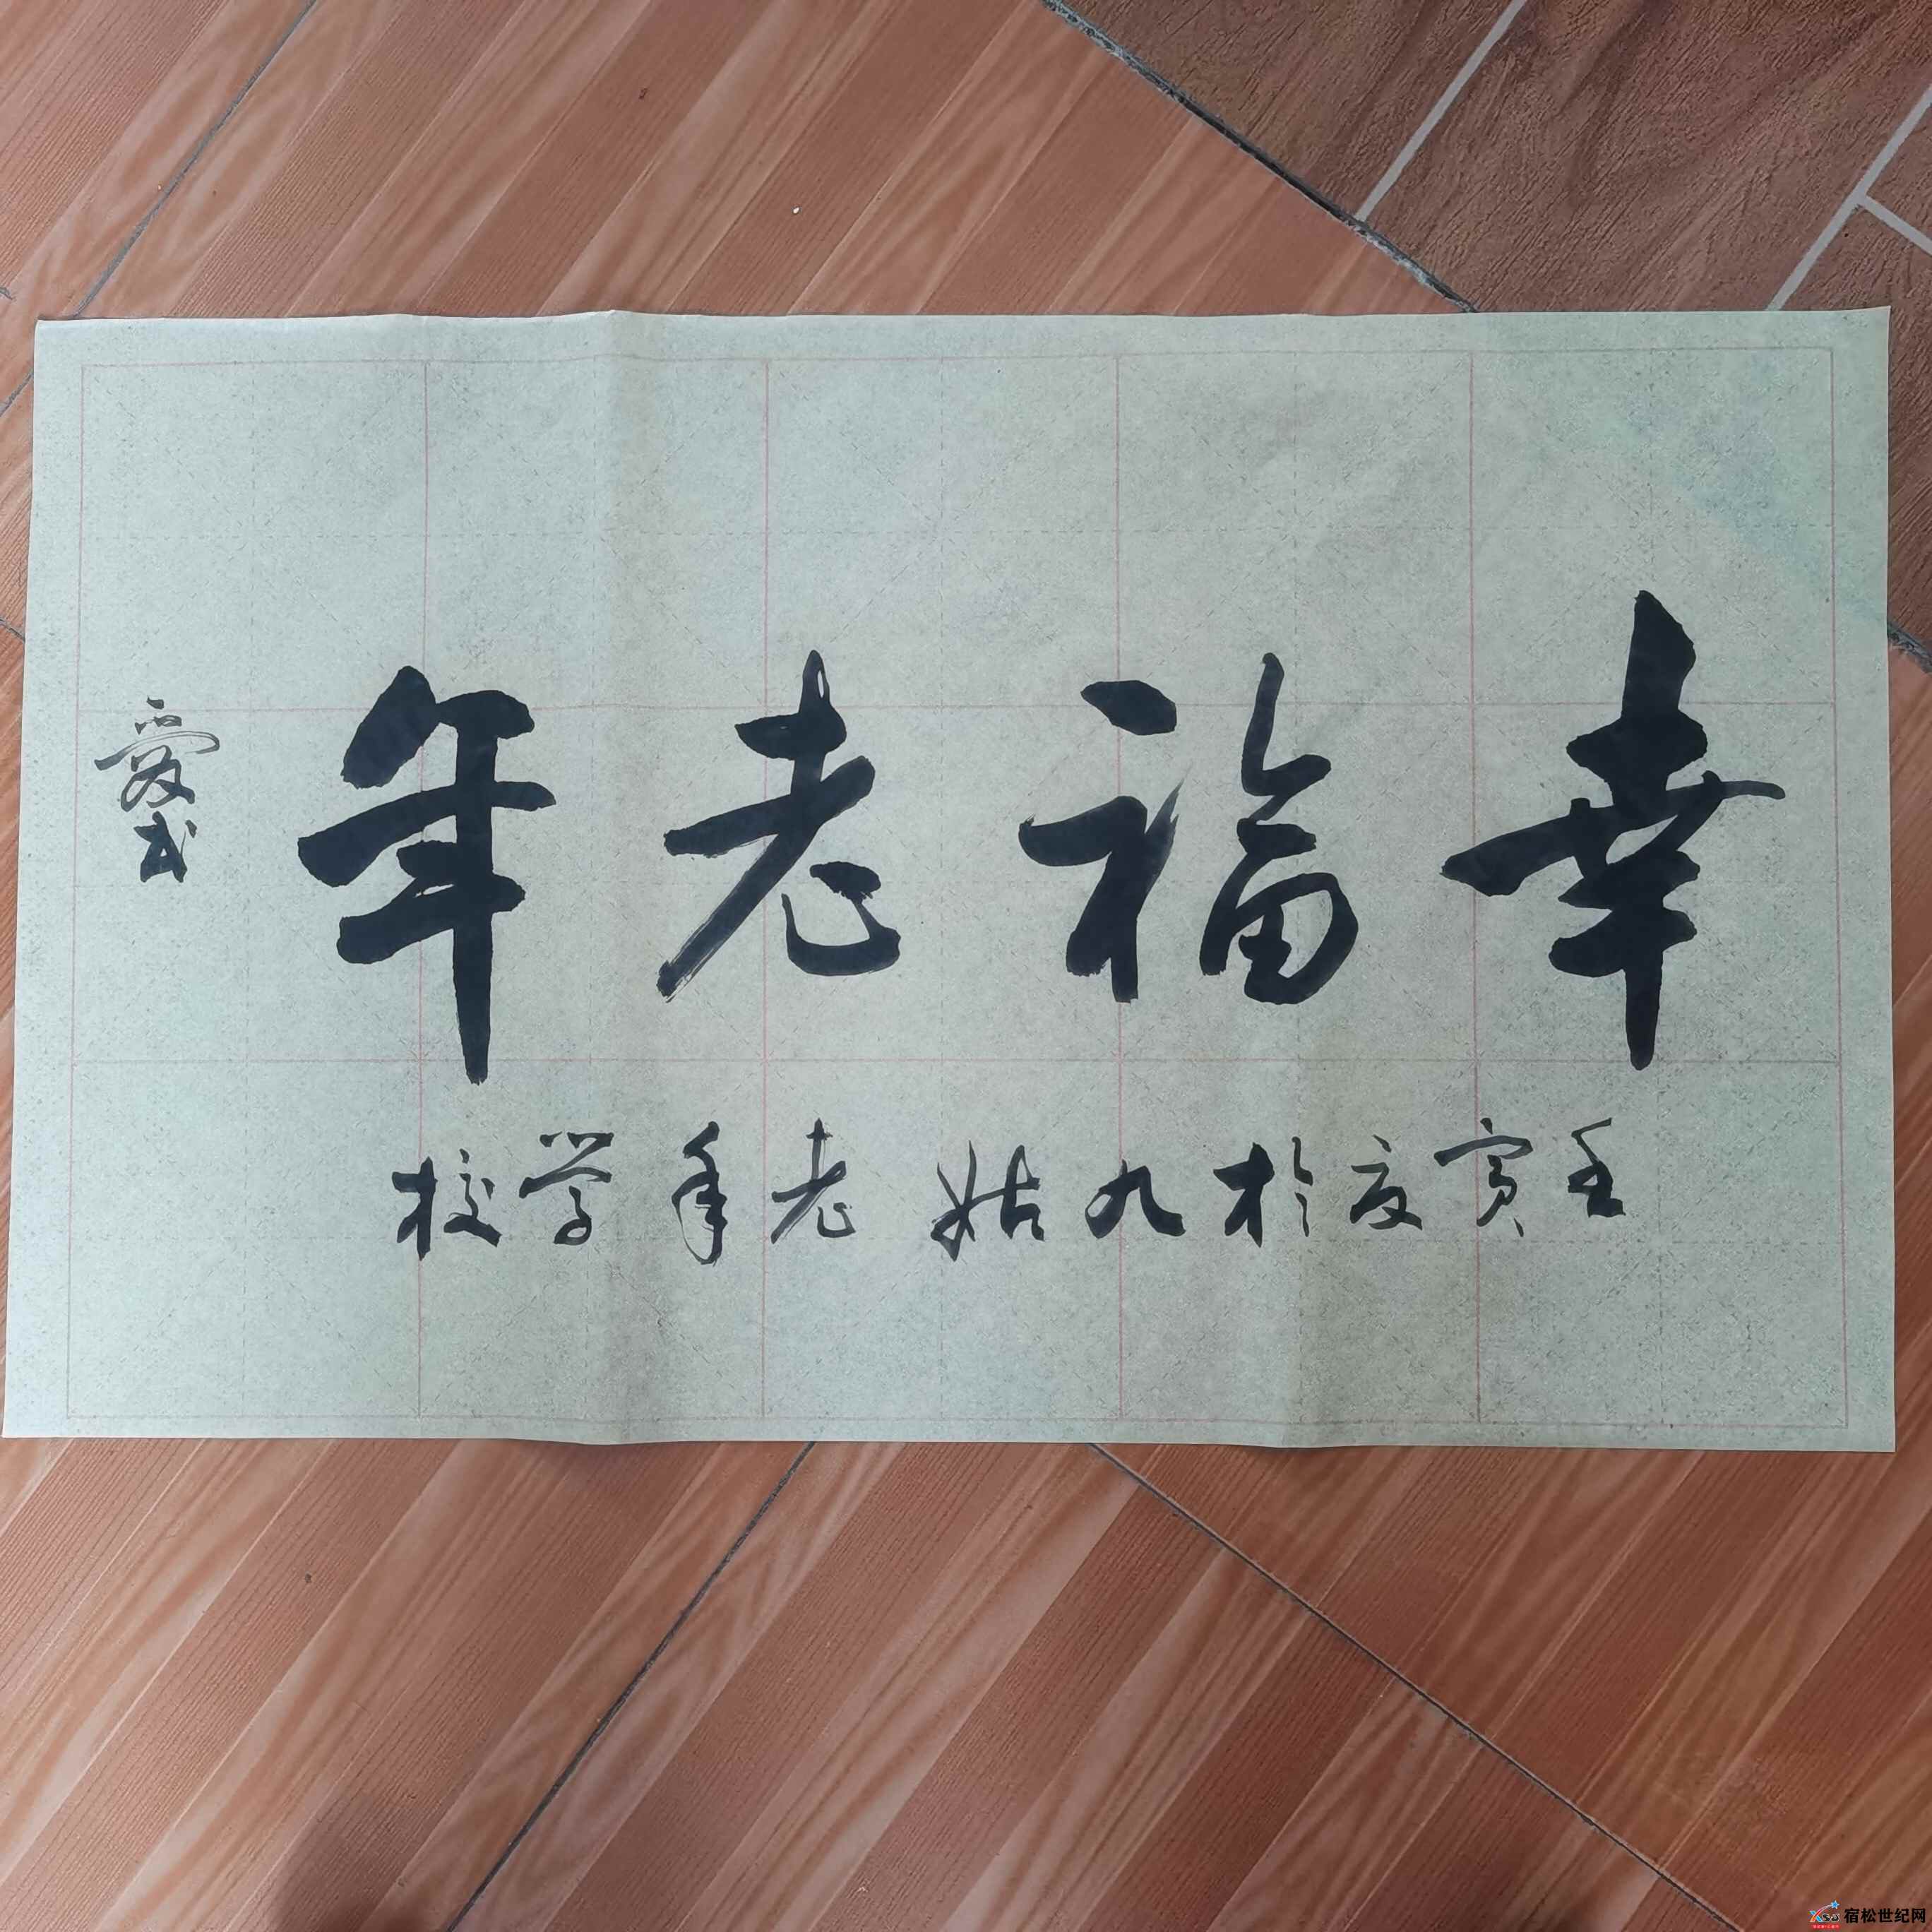 幸福老年
壬寅夏於九姑老年学校
爱武
宿松世纪网